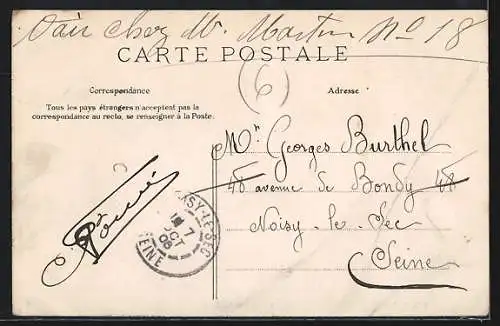 Voir chez Mr. Martin No 18
CARTE POSTALE
(6)
Correspondance
Adresse
Tous les pays étrangers n'acceptent pas la
correspondance au recto, se renseigner à la Poste.
Mr Georges Burthel
48 avenue de Bondy 48
Noisy-le-Sec
Seine
NOISY-LE-SEC
7
OCT
08
SEINE